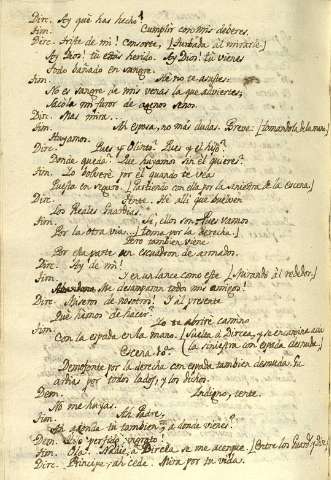 Dir. Ay que has hecho?
Tim. Cumplir con mis deberes.
Dirc. Triste de mi! Consorte, (Turbada al mirarle.)
Ay Dios! tu estás herido. Ay Dios! tu vienes
Todo bañado en sangre.
Tim. No te asustes:
No es sangre de mis venas la que adviertes;
Sacóla mi furor de agenos senos.
Dir. Mas mira.
Tim. Ah esposa, no más dudas. Breve: (Tomandola de la mano.)
Huyamos.
Dirc. Pues y Olinto? Pues y el hijo?
Donde queda? Que huyamos sin el quieres?
Tim. Yo bolveré por él quando te vea
Puesta en seguro. (Partiendo con ella por la siniestra de la escena.)
Dir. Tente. He alli que buelven
Los Reales
Tim. Sí, ellos son: pues vamos
Por la otra via... (Toma por la derecha.)
Pero tambien viene
Por esa parte un escuadron de armados.
Dir. Ay! de mi!
Tim. Y en un lance como este (Mirando al rededor.)
Me desamparan todos mis amigos!
Dir. Mísero de nosotros! Y al presente
Qué hemos de hacer?
Tim. Yo te abriré camino
Con la espada en la mano. (Suelta a Dircea, y se encamina acia
la siniestra con espada desnuda.)
Escena 10.ª
Demofonte por la derecha con espada tambien desnuda. Gu
ardias por todos lados, y los dichos.
Dem. Indigno, tente.
No me huyas.
Tim. Ah Padre,
Ah a donde tu tambien, a donde vienes?
Dem. Hijo perfido, ingrato!
Tim. Ola! Nadie a Dircea se me acerque. (Entre los Guard. y Dir.)
Dirc. Principe, ah cede. Mira por tu vida.